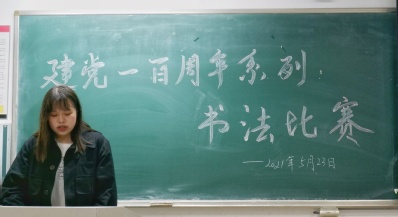 建党一百周年系列：
书法比赛
——2021年5月23日